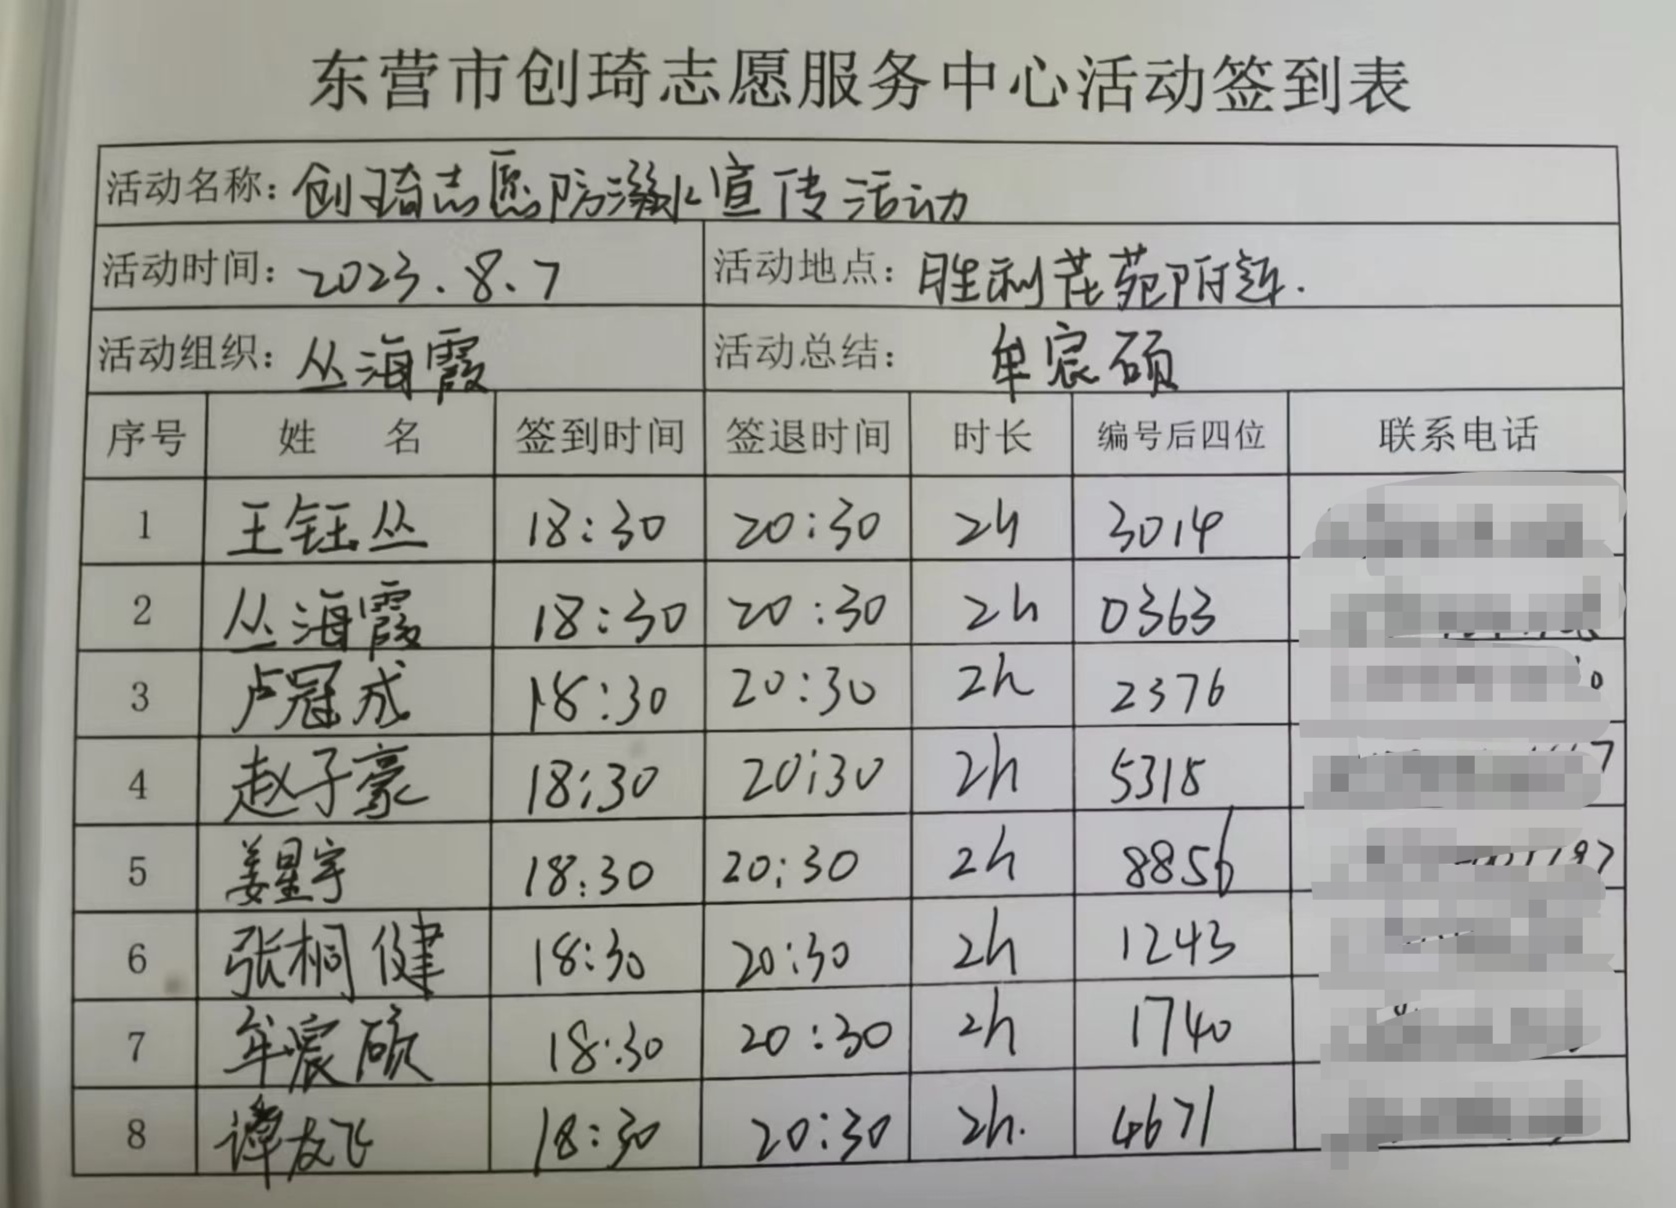 东营市创琦志愿服务中心活动签到表
活动名称：创琦志愿防溺水宣传活动
活动时间：2023.8.7 活动地点：胜利花苑附近.
活动组织：丛海霞 活动总结：牟宸硕
序号 姓 名 签到时间 签退时间 时长 编号后四位 联系电话
1 王钰丛 18:30 20:30 2h 3014
2 丛海霞 18:30 20:30 2h 0363
3 卢冠成 18:30 20:30 2h 2376
4 赵子豪 18:30 20:30 2h 5318
5 姜星宇 18:30 20:30 2h 8856
6 张桐健 18:30 20:30 2h 1243
7 牟宸硕 18:30 20:30 2h 1740
8 谭友飞 18:30 20:30 2h. 4671